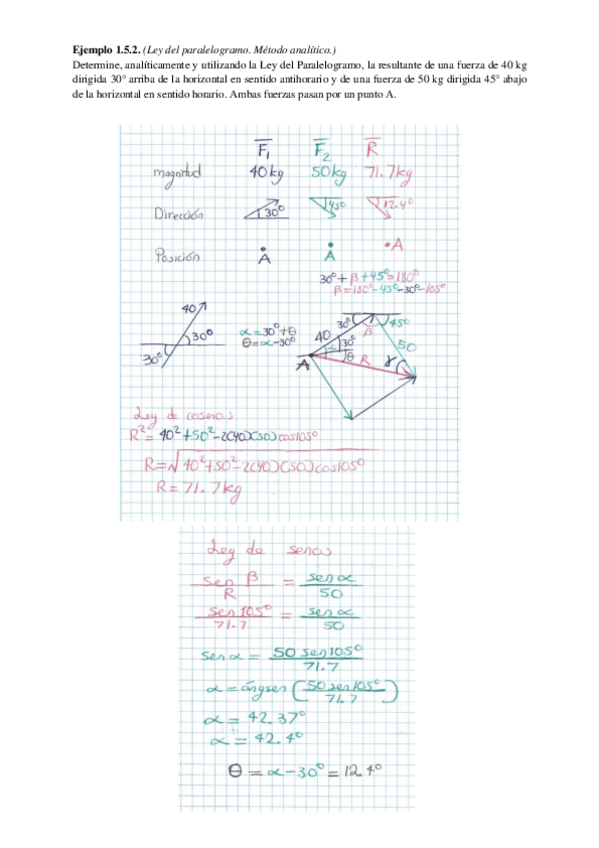 Ejemplo 1.5.2. (Ley del paralelogramo. Método analítico.)
Determine, analíticamente y utilizando la Ley del Paralelogramo, la resultante de una fuerza de 40 kg
dirigida 30° arriba de la horizontal en sentido antihorario y de una fuerza de 50 kg dirigida 45° abajo
de la horizontal en sentido horario. Ambas fuerzas pasan por un punto A.
F₁ F₂ R
magnitud 40kg 50kg 71.7kg
Dirección 30° 45° 12.4°
Posición A A A
30°+β+45°=180°
β=180°-45°-30°=105°
40 30° 30°
α=30°+θ
θ=α-30°
30° 45° β 40 30° 50
A θ R γ
Ley de cosenos
R²=40²+50²-2(40)(50)cos105°
R=√40²+50²-2(40)(50)cos105°
R=71.7kg
Ley de senos
sen β / R = sen α / 50
sen 105° / 71.7 = sen α / 50
sen α = 50 sen 105° / 71.7
α = ángsen (50 sen 105° / 71.7)
α = 42.37°
α = 42.4°
θ = α-30° = 12.4°